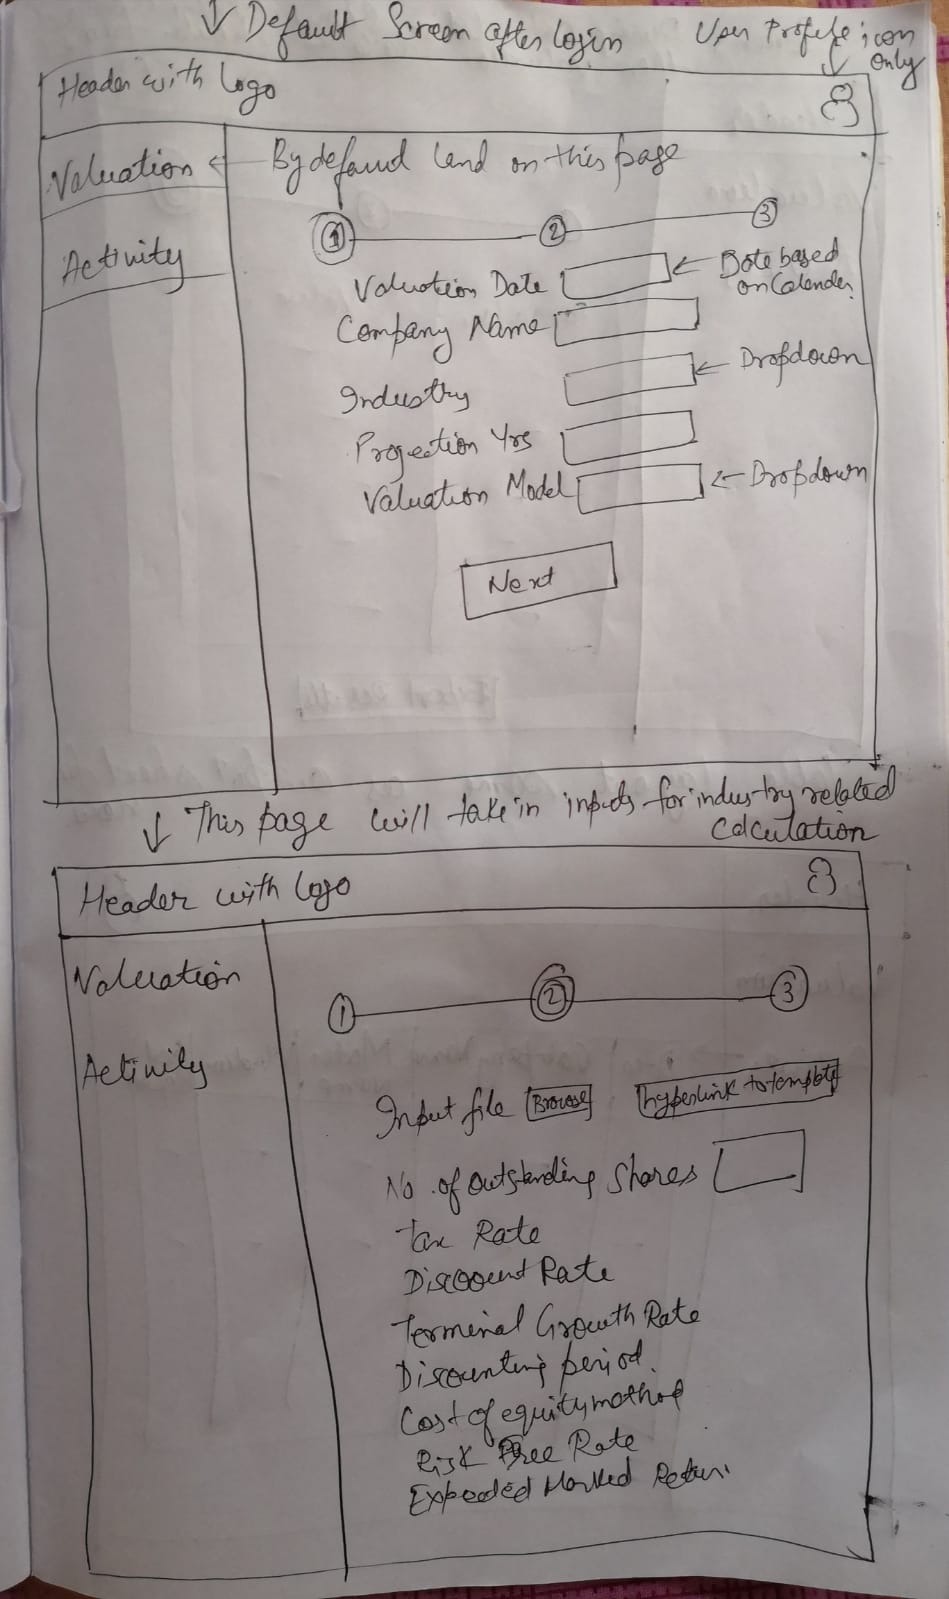 ↓ Default Screen after login
User Profile icon
only
Header with Logo
Valuation ← By default land on this page
Activity
1 2 3
Valuation Date ← Date based
on Calender.
Company Name
Industry ← Dropdown
Projection Yrs
Valuation Model ← Dropdown
Next
↓ This page will take in inputs for industry related
calculation
Header with logo
Valuation
1 2 3
Activity
Input file Browse hyperlink to template
No. of outstanding shares
Tax Rate
Discount Rate
Terminal Growth Rate
Discounting period.
Cost of equity method
Risk Free Rate
Expected Market Return